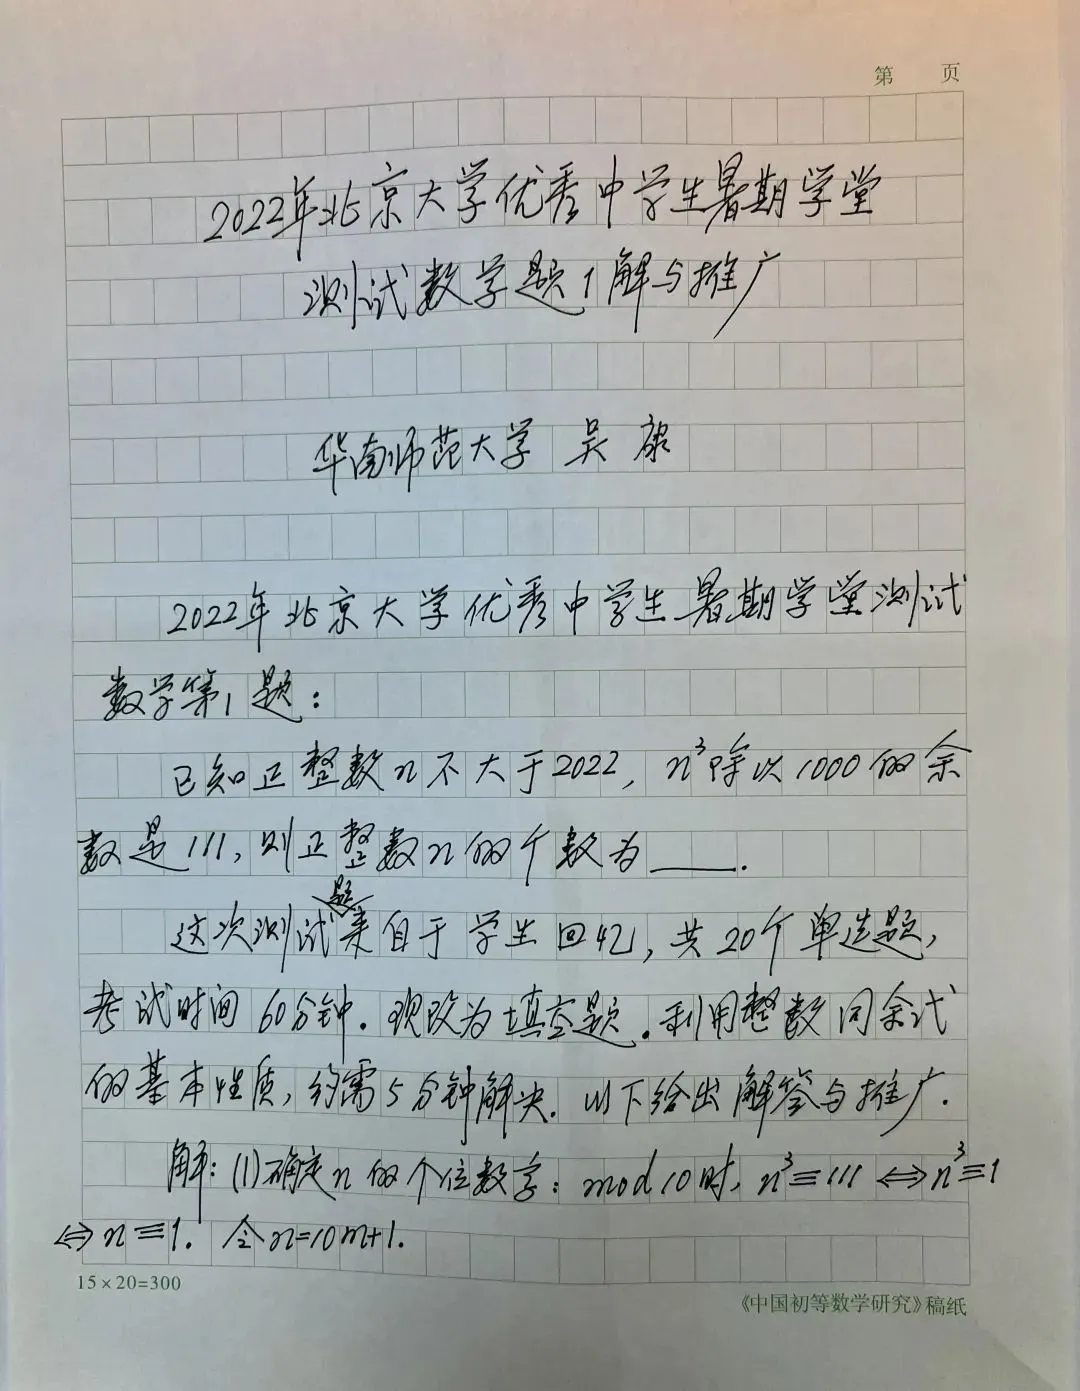 第 页
2022年北京大学优秀中学生暑期学堂
测试数学题1解与推广
华南师范大学 吴康
2022年北京大学优秀中学生暑期学堂测试
数学第1题:
已知正整数n不大于2022, n³除以1000的余
数是111, 则正整数n的个数为____.
这次测试题来自于学生回忆, 共20个单选题,
考试时间60分钟. 现改为填空题. 利用整数同余式
的基本性质, 约需5分钟解决. 以下给出解答与推广.
解: (1)确定n的个位数字: mod 10时, n³≡111 ⟺ n³≡1
⟺ n≡1. 令n=10m+1.
15×20=300
《中国初等数学研究》稿纸